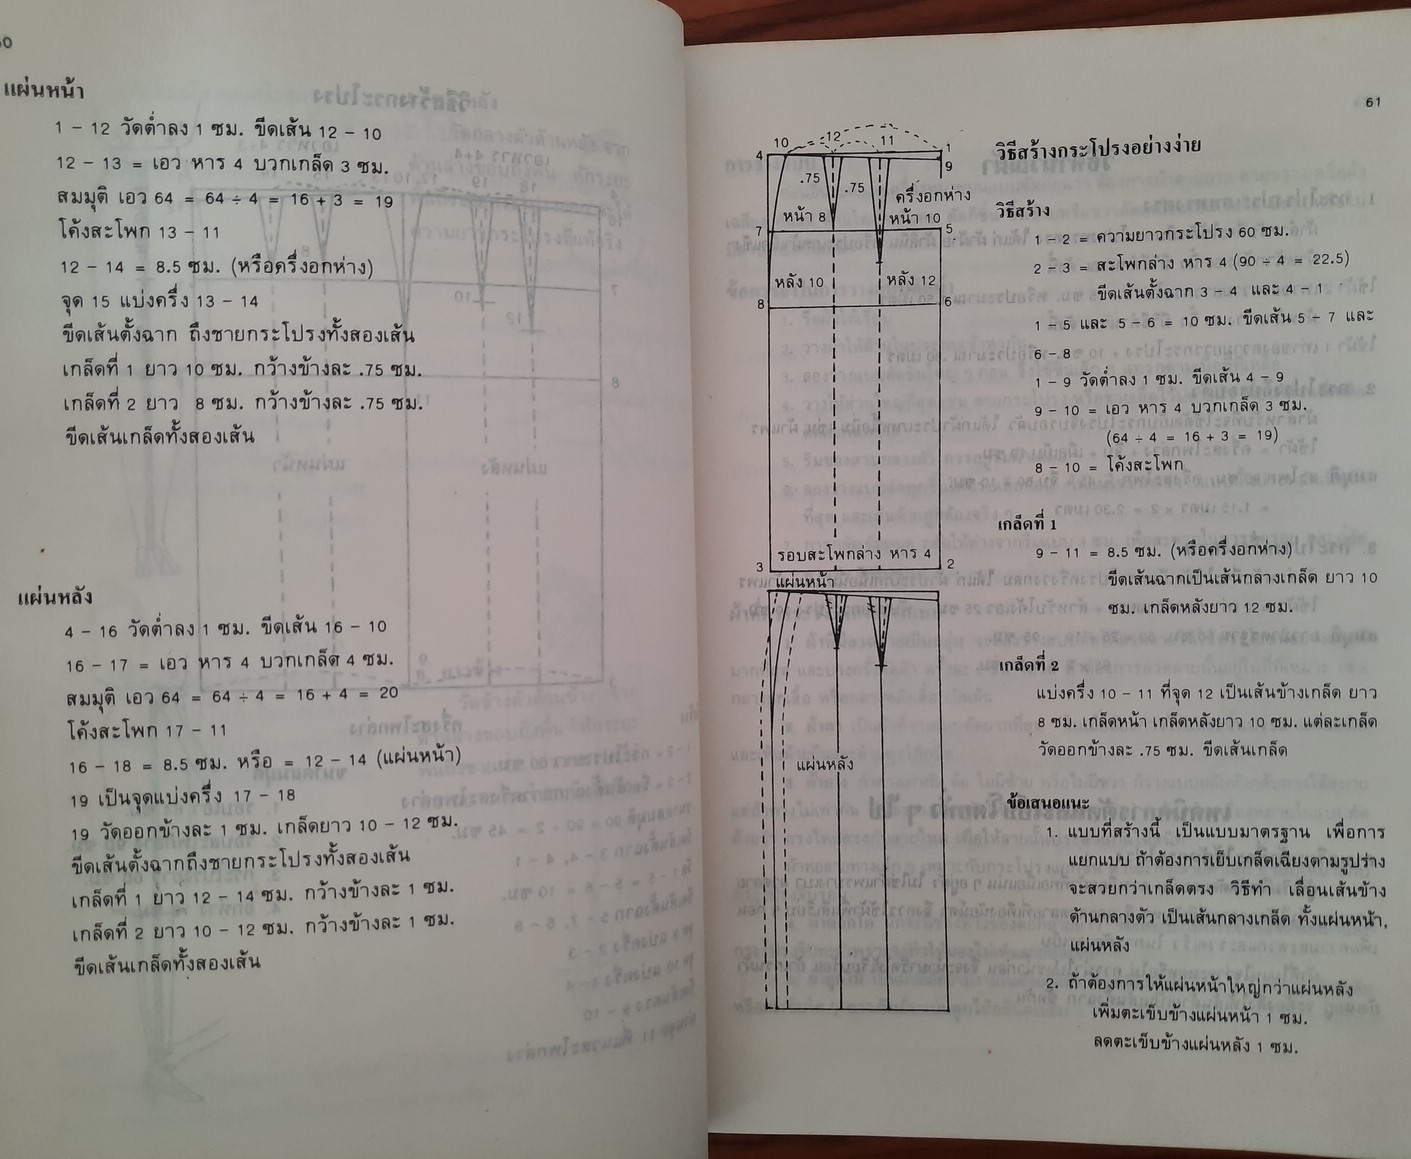 แผ่นหน้า
1 - 12 วัดต่ำลง 1 ซม. ขีดเส้น 12 - 10
12 - 13 = เอว หาร 4 บวกเกล็ด 3 ซม.
สมมุติ เอว 64 = 64 ÷ 4 = 16 + 3 = 19
โค้งสะโพก 13 - 11
12 - 14 = 8.5 ซม. (หรือครึ่งอกห่าง)
จุด 15 แบ่งครึ่ง 13 - 14
ขีดเส้นตั้งฉาก ถึงชายกระโปรงทั้งสองเส้น
เกล็ดที่ 1 ยาว 10 ซม. กว้างข้างละ .75 ซม.
เกล็ดที่ 2 ยาว 8 ซม. กว้างข้างละ .75 ซม.
ขีดเส้นเกล็ดทั้งสองเส้น
แผ่นหลัง
4 - 16 วัดต่ำลง 1 ซม. ขีดเส้น 16 - 10
16 - 17 = เอว หาร 4 บวกเกล็ด 4 ซม.
สมมุติ เอว 64 = 64 ÷ 4 = 16 + 4 = 20
โค้งสะโพก 17 - 11
16 - 18 = 8.5 ซม. หรือ = 12 - 14 (แผ่นหน้า)
19 เป็นจุดแบ่งครึ่ง 17 - 18
19 วัดออกข้างละ 1 ซม. เกล็ดยาว 10 - 12 ซม.
ขีดเส้นตั้งฉากถึงชายกระโปรงทั้งสองเส้น
เกล็ดที่ 1 ยาว 12 - 14 ซม. กว้างข้างละ 1 ซม.
เกล็ดที่ 2 ยาว 10 - 12 ซม. กว้างข้างละ 1 ซม.
ขีดเส้นเกล็ดทั้งสองเส้น
61
10 12 11
4 1
9
.75 .75
ครึ่งอกห่าง
หน้า 8 หน้า 10
7 5
หลัง 10 หลัง 12
8 6
รอบสะโพกล่าง หาร 4
3 2
แผ่นหน้า
แผ่นหลัง
วิธีสร้างกระโปรงอย่างง่าย
วิธีสร้าง
1 - 2 = ความยาวกระโปรง 60 ซม.
2 - 3 = สะโพกล่าง หาร 4 (90 ÷ 4 = 22.5)
ขีดเส้นตั้งฉาก 3 - 4 และ 4 - 1
1 - 5 และ 5 - 6 = 10 ซม. ขีดเส้น 5 - 7 และ
6 - 8
1 - 9 วัดต่ำลง 1 ซม. ขีดเส้น 4 - 9
9 - 10 = เอว หาร 4 บวกเกล็ด 3 ซม.
(64 ÷ 4 = 16 + 3 = 19)
8 - 10 = โค้งสะโพก
เกล็ดที่ 1
9 - 11 = 8.5 ซม. (หรือครึ่งอกห่าง)
ขีดเส้นฉากเป็นเส้นกลางเกล็ด ยาว 10
ซม. เกล็ดหลังยาว 12 ซม.
เกล็ดที่ 2
แบ่งครึ่ง 10 - 11 ที่จุด 12 เป็นเส้นข้างเกล็ด ยาว
8 ซม. เกล็ดหน้า เกล็ดหลังยาว 10 ซม. แต่ละเกล็ด
วัดออกข้างละ .75 ซม. ขีดเส้นเกล็ด
ข้อเสนอแนะ
1. แบบที่สร้างนี้ เป็นแบบมาตรฐาน เพื่อการ
แยกแบบ ถ้าต้องการเย็บเกล็ดเฉียงตามรูปร่าง
จะสวยกว่าเกล็ดตรง วิธีทำ เลื่อนเส้นข้าง
ด้านกลางตัว เป็นเส้นกลางเกล็ด ทั้งแผ่นหน้า,
แผ่นหลัง
2. ถ้าต้องการให้แผ่นหน้าใหญ่กว่าแผ่นหลัง
เพิ่มตะเข็บข้างแผ่นหน้า 1 ซม.
ลดตะเข็บข้างแผ่นหลัง 1 ซม.